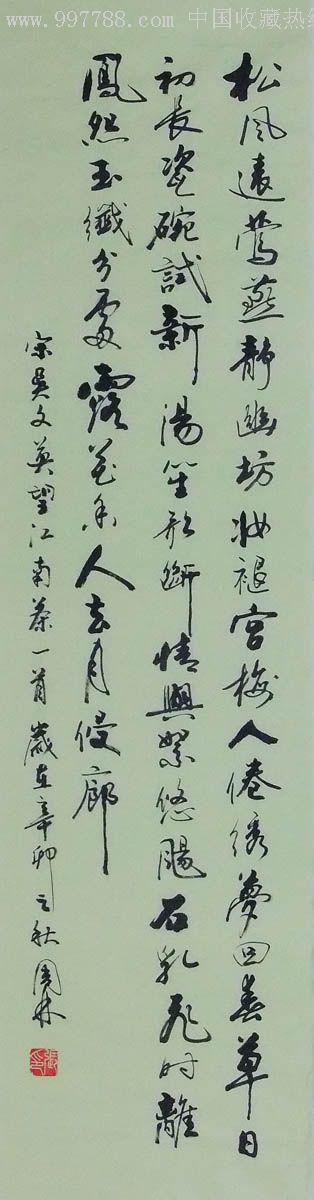 www.997788.com 中国收藏热线
松風遠鶯燕静幽坊妝褪宫梅人倦綉夢回春草日
初長瓷碗試新湯笙歌斷情與絮悠颺石乳飛时離
鳳怨玉纖分處露花香人去月侵廊
宋吴文英望江南茶一首歲在辛卯之秋林